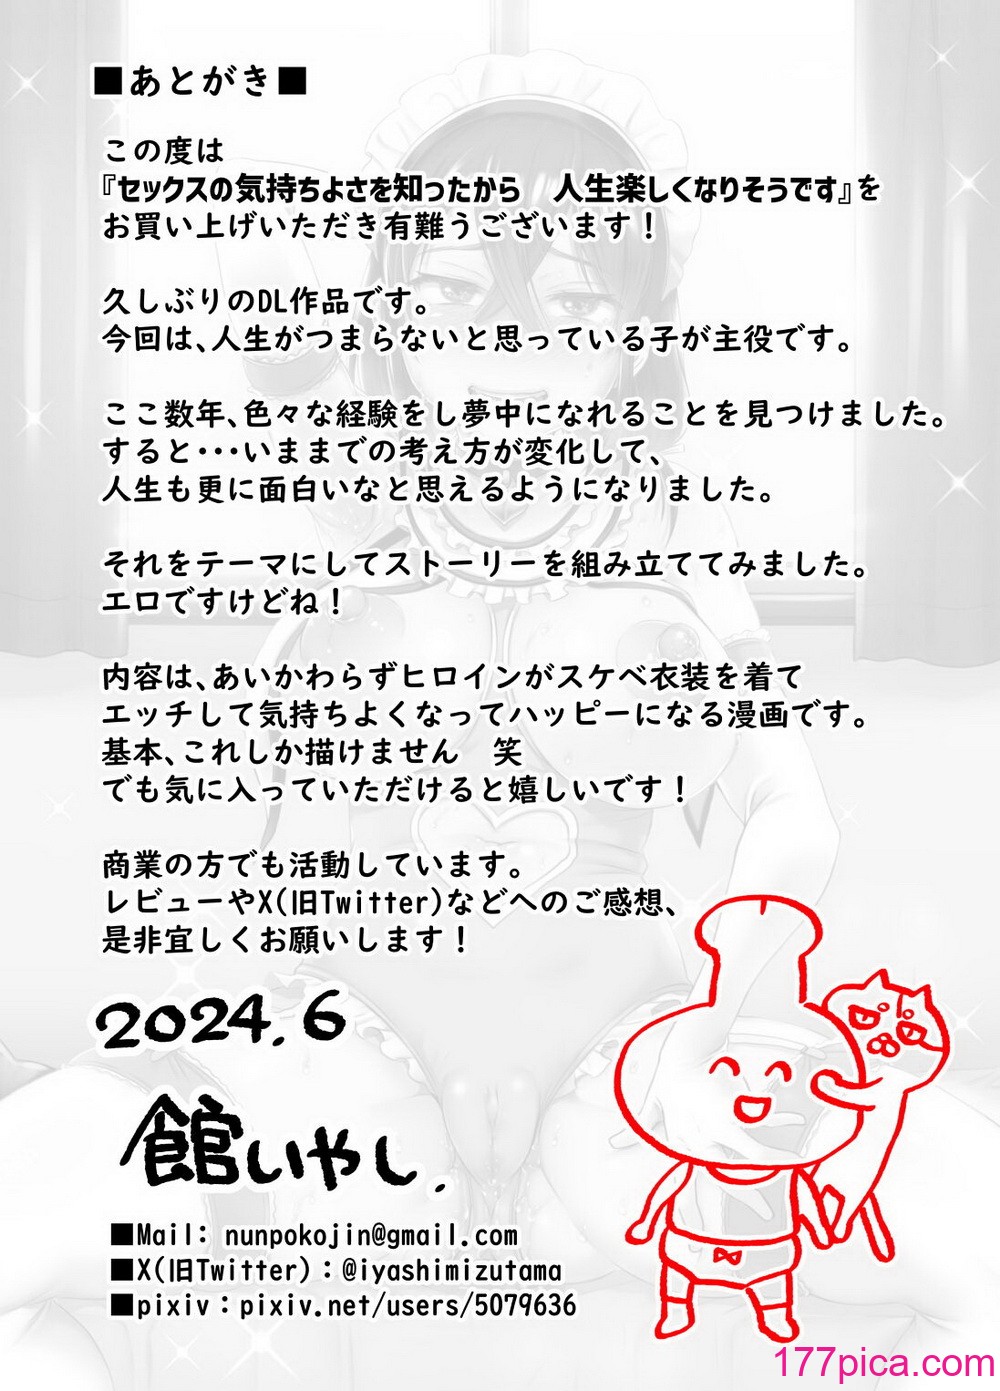 ■あとがき■
この度は
『セックスの気持ちよさを知ったから　人生楽しくなりそうです』を
お買い上げいただき有難うございます！
久しぶりのDL作品です。
今回は、人生がつまらないと思っている子が主役です。
ここ数年、色々な経験をし夢中になれることを見つけました。
すると・・・いままでの考え方が変化して、
人生も更に面白いなと思えるようになりました。
それをテーマにしてストーリーを組み立ててみました。
エロですけどね！
内容は、あいかわらずヒロインがスケベ衣装を着て
エッチして気持ちよくなってハッピーになる漫画です。
基本、これしか描けません　笑
でも気に入っていただけると嬉しいです！
商業の方でも活動しています。
レビューやX(旧Twitter)などへのご感想、
是非宜しくお願いします！
2024.6
館いやし.
■Mail: nunpokojin@gmail.com
■X(旧Twitter)：@iyashimizutama
■pixiv：pixiv.net/users/5079636
177pica.com